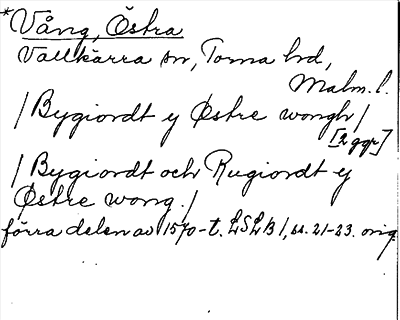 *Vång, Östra
Vallkärra sn, Torna hd,
Malm. l.
/Bygiordt y Østre wongh/
[2 ggr]
/Bygiordt och Rugiordt y
Østre wong./
förra delen av 1570-t. LSLB 1, ss. 21-23. orig.